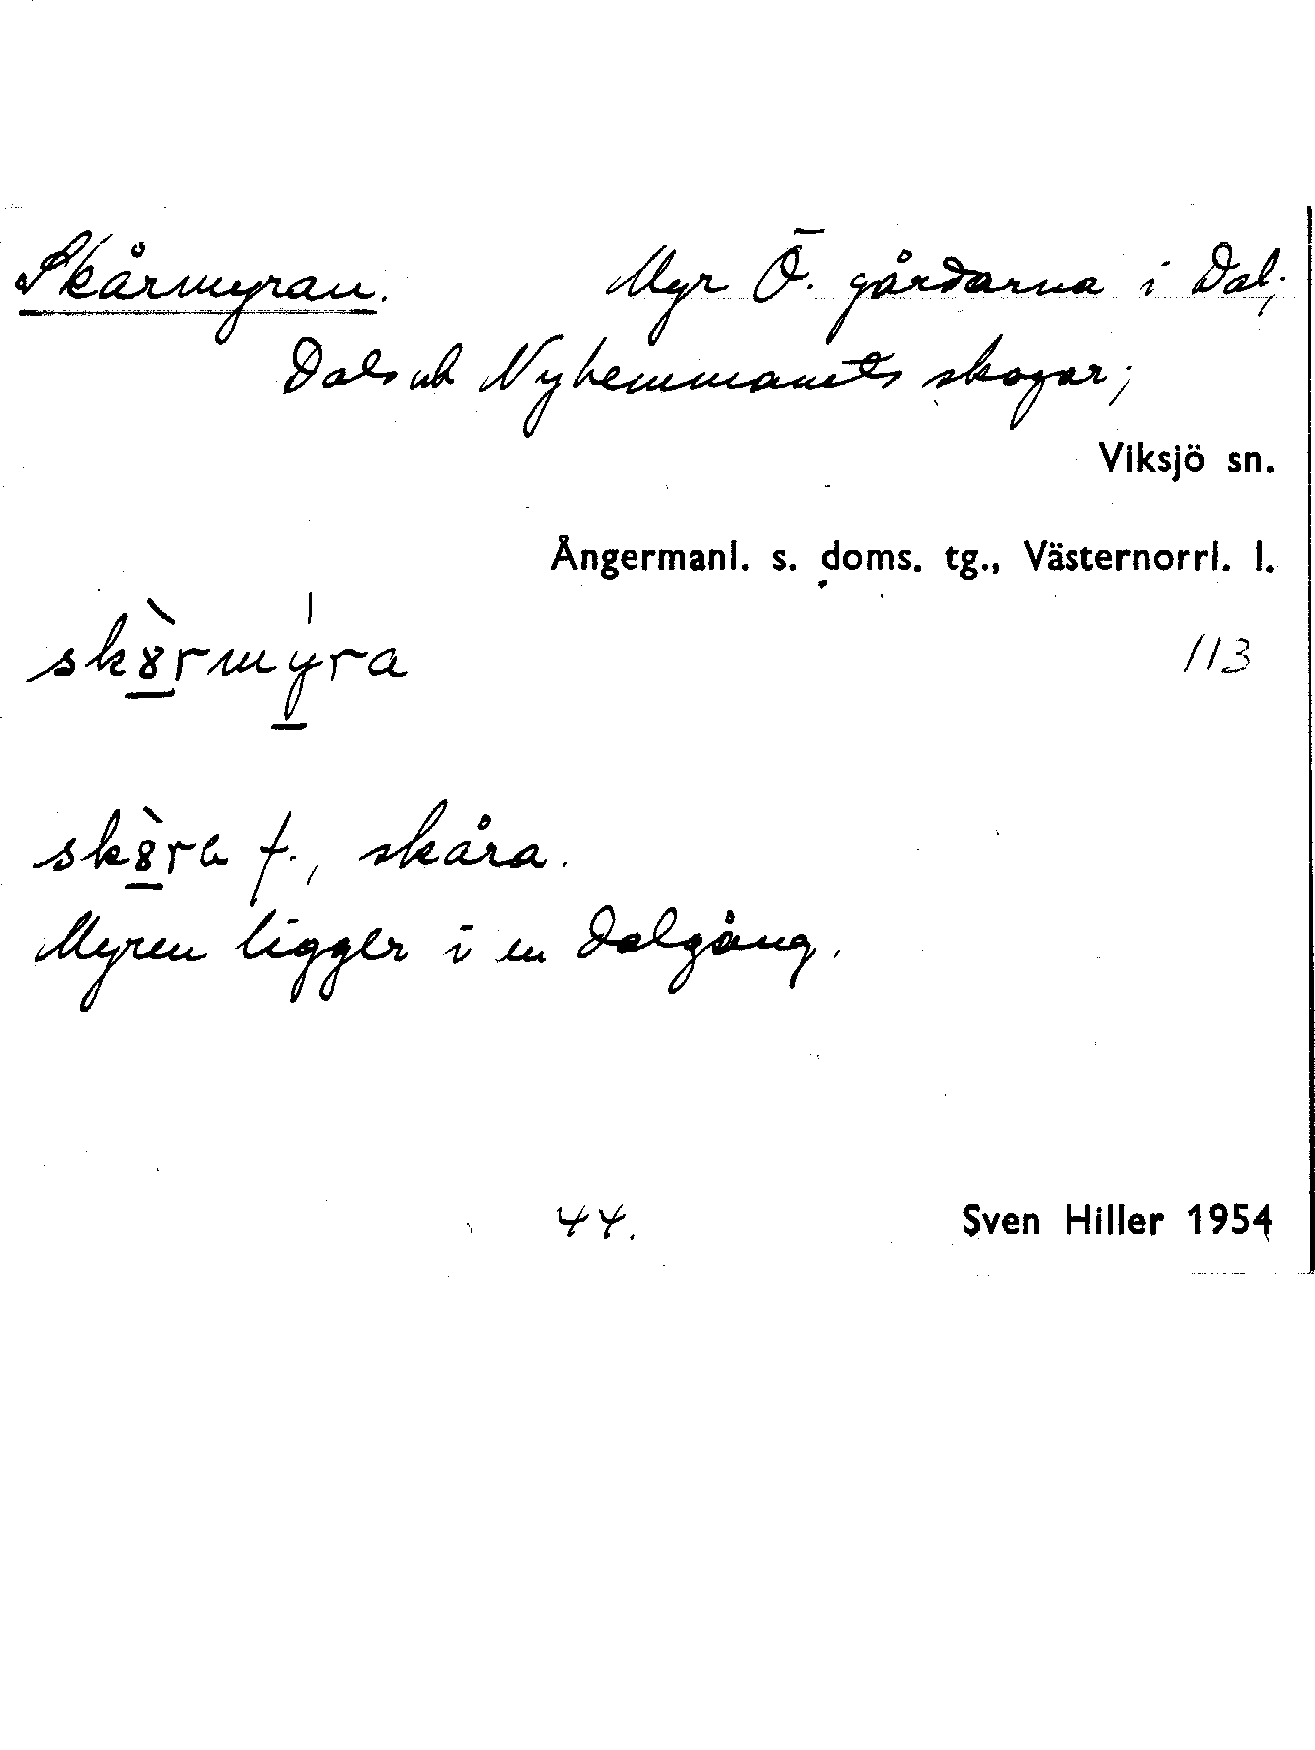 Skårmyran. Myr Ö. gårdarna i Dal;
Dals och Nyhemmanets skogar;
Viksjö sn.
Ångermanl. s. doms. tg., Västernorrl. l.
sk8̀rmýra 113
sk8̀ra f., skåra.
Myren ligger i en dalgång.
44. Sven Hiller 1954